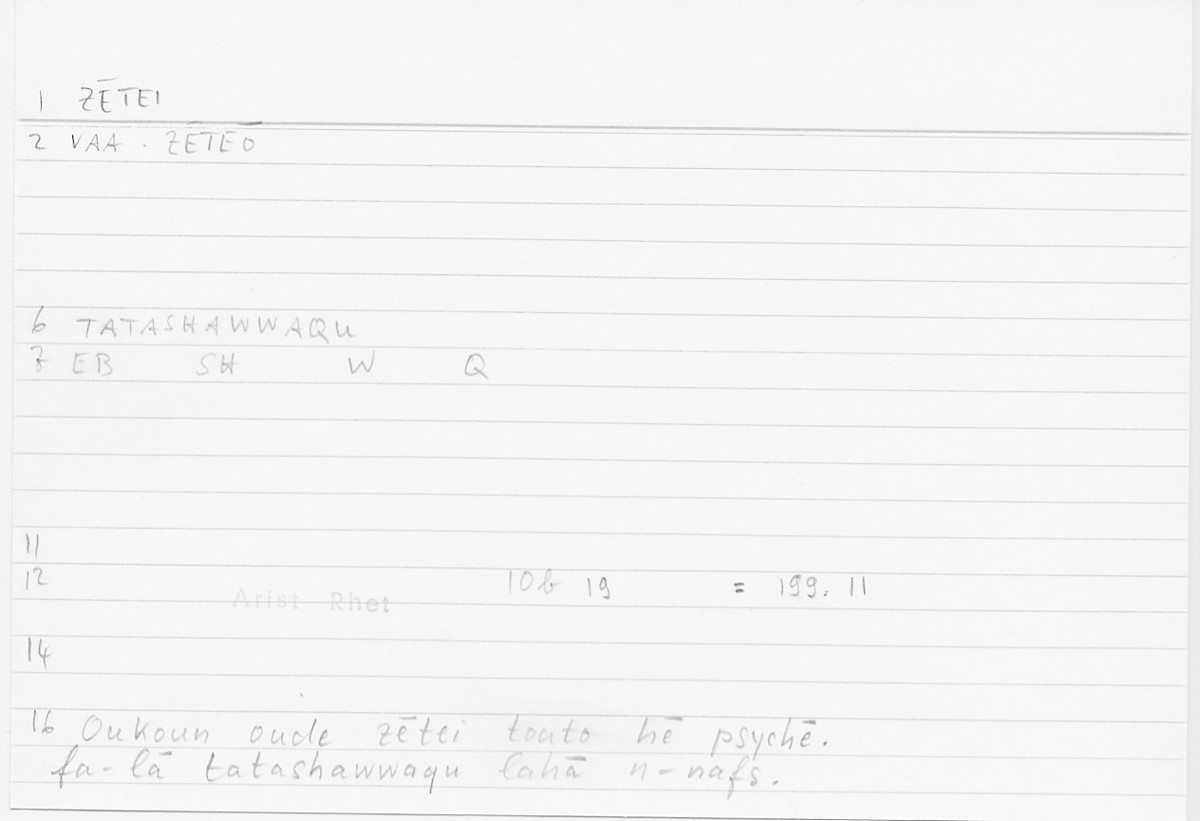 1 ZĒTEI
2 VAA . ZĒTEŌ
6 TATASHAWWAQU
7 EB SH W Q
11
12 Arist Rhet 10b 19 = 199. 11
14
16 Oukoun oude zētei touto hē psychē.
fa-lā tatashawwaqu lahā n-nafs.